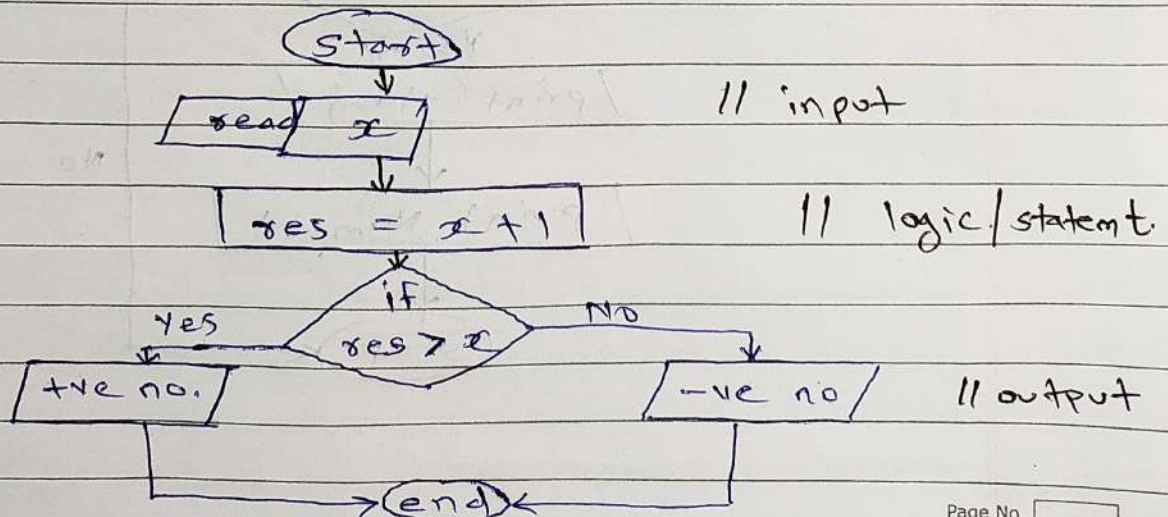 start
read x // input
res = x + 1 // logic/statemt.
if
Yes res > x No
+ve no. -ve no // output
end
Page No.